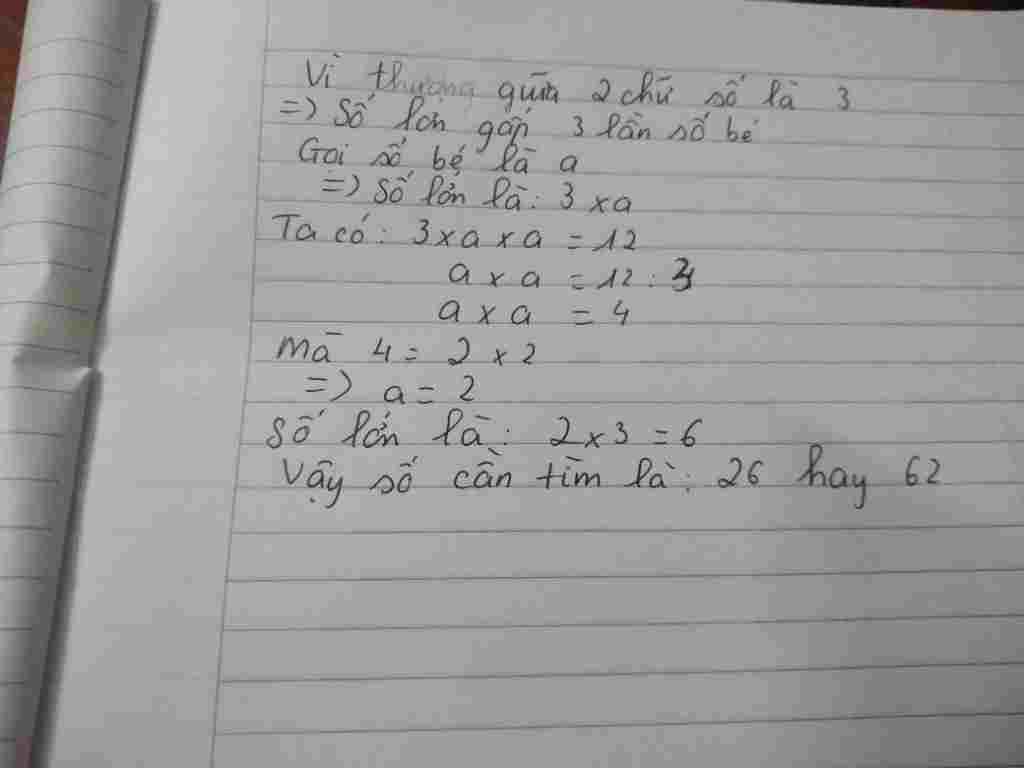 Vì thương giữa 2 chữ số là 3
=) Số lớn gấp 3 lần số bé
Gọi số bé là a
=) Số lớn là: 3 x a
Ta có: 3 x a x a = 12
a x a = 12 : 3
a x a = 4
mà 4 = 2 x 2
=) a = 2
Số lớn là: 2 x 3 = 6
Vậy số cần tìm là: 26 hay 62